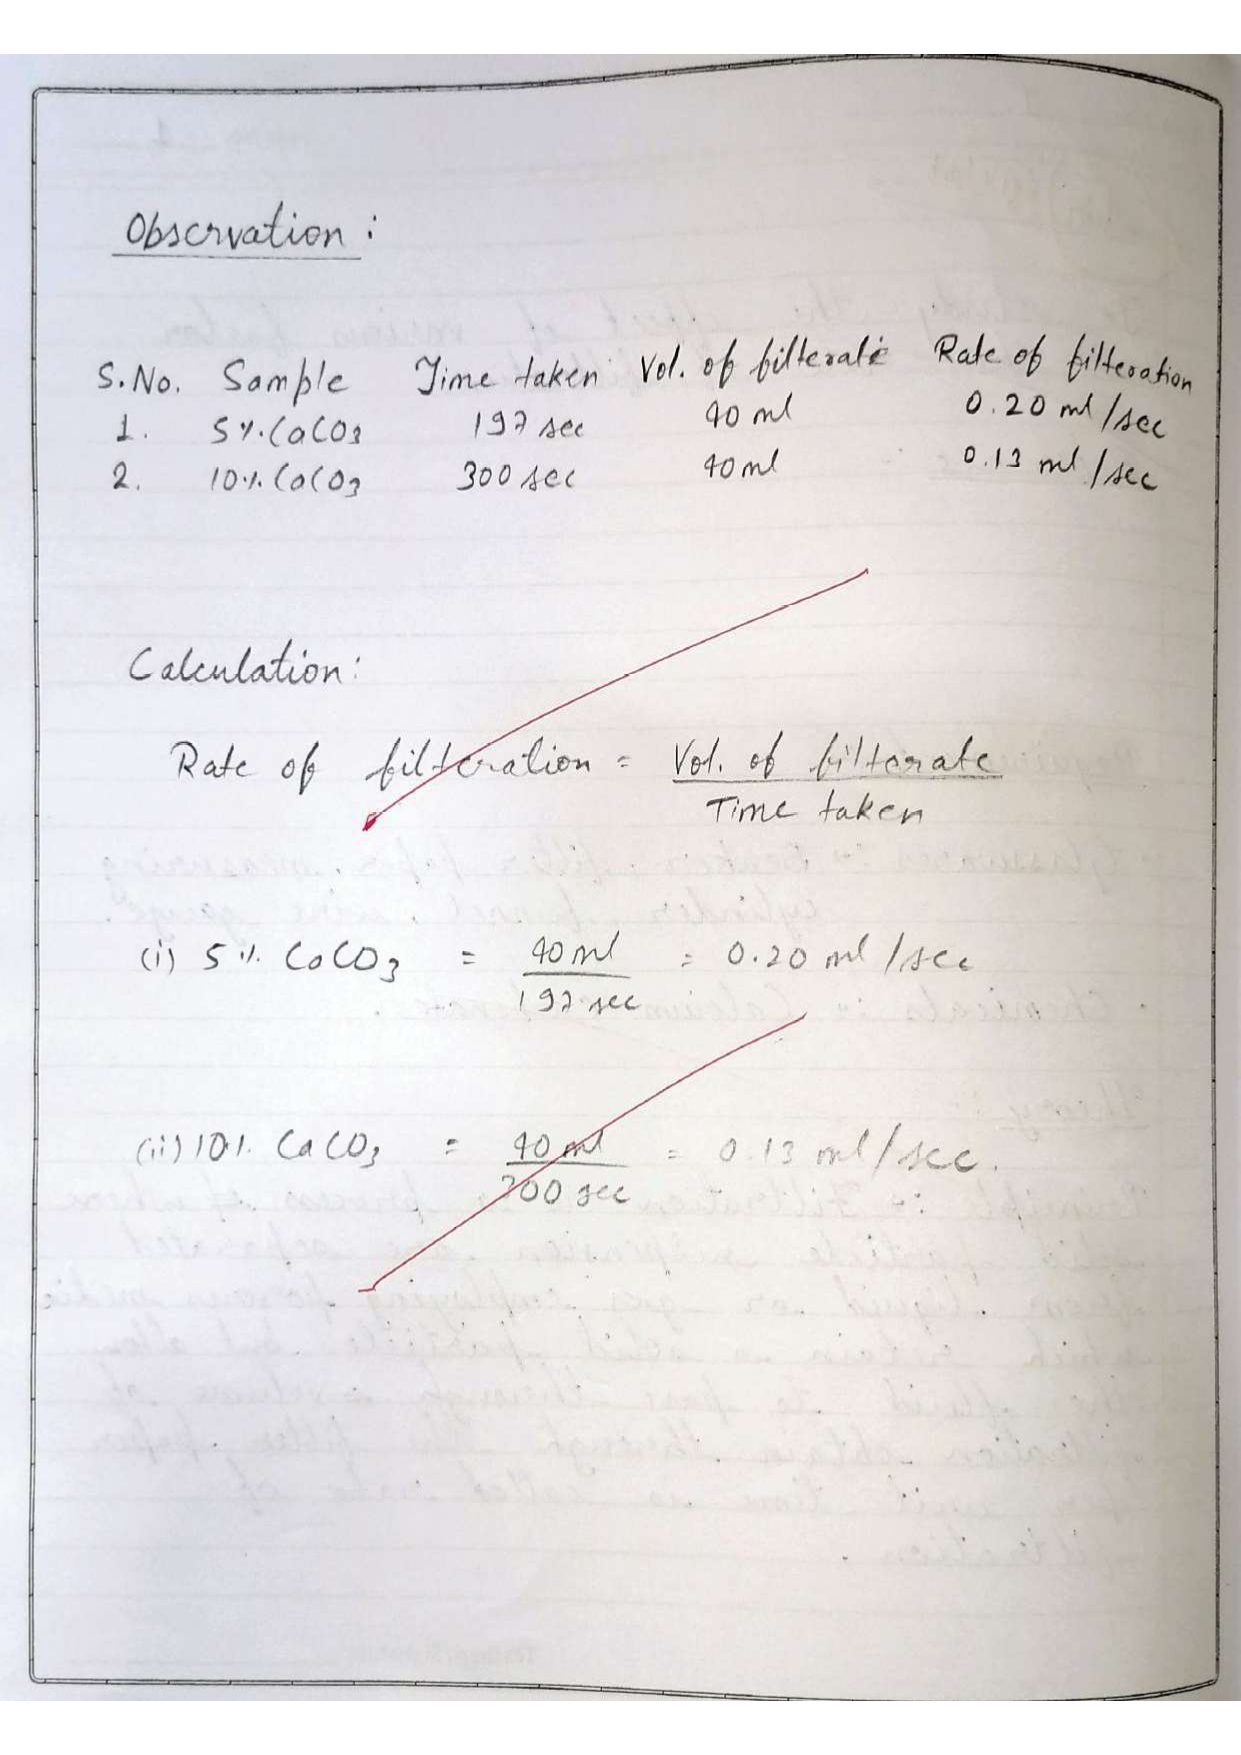 Observation :
S.No. Sample Time taken Vol. of filterate Rate of filteration
1. 5%.CaCO3 197 sec 40 ml 0.20 ml/sec
2. 10%. CaCO3 300 sec 40 ml 0.13 ml/sec
Calculation:
Rate of filteration = Vol. of filterate
Time taken
(i) 5%. CaCO3 = 40 ml = 0.20 ml/sec
197 sec
(ii) 10%. CaCO3 = 40 ml = 0.13 ml/sec.
300 sec